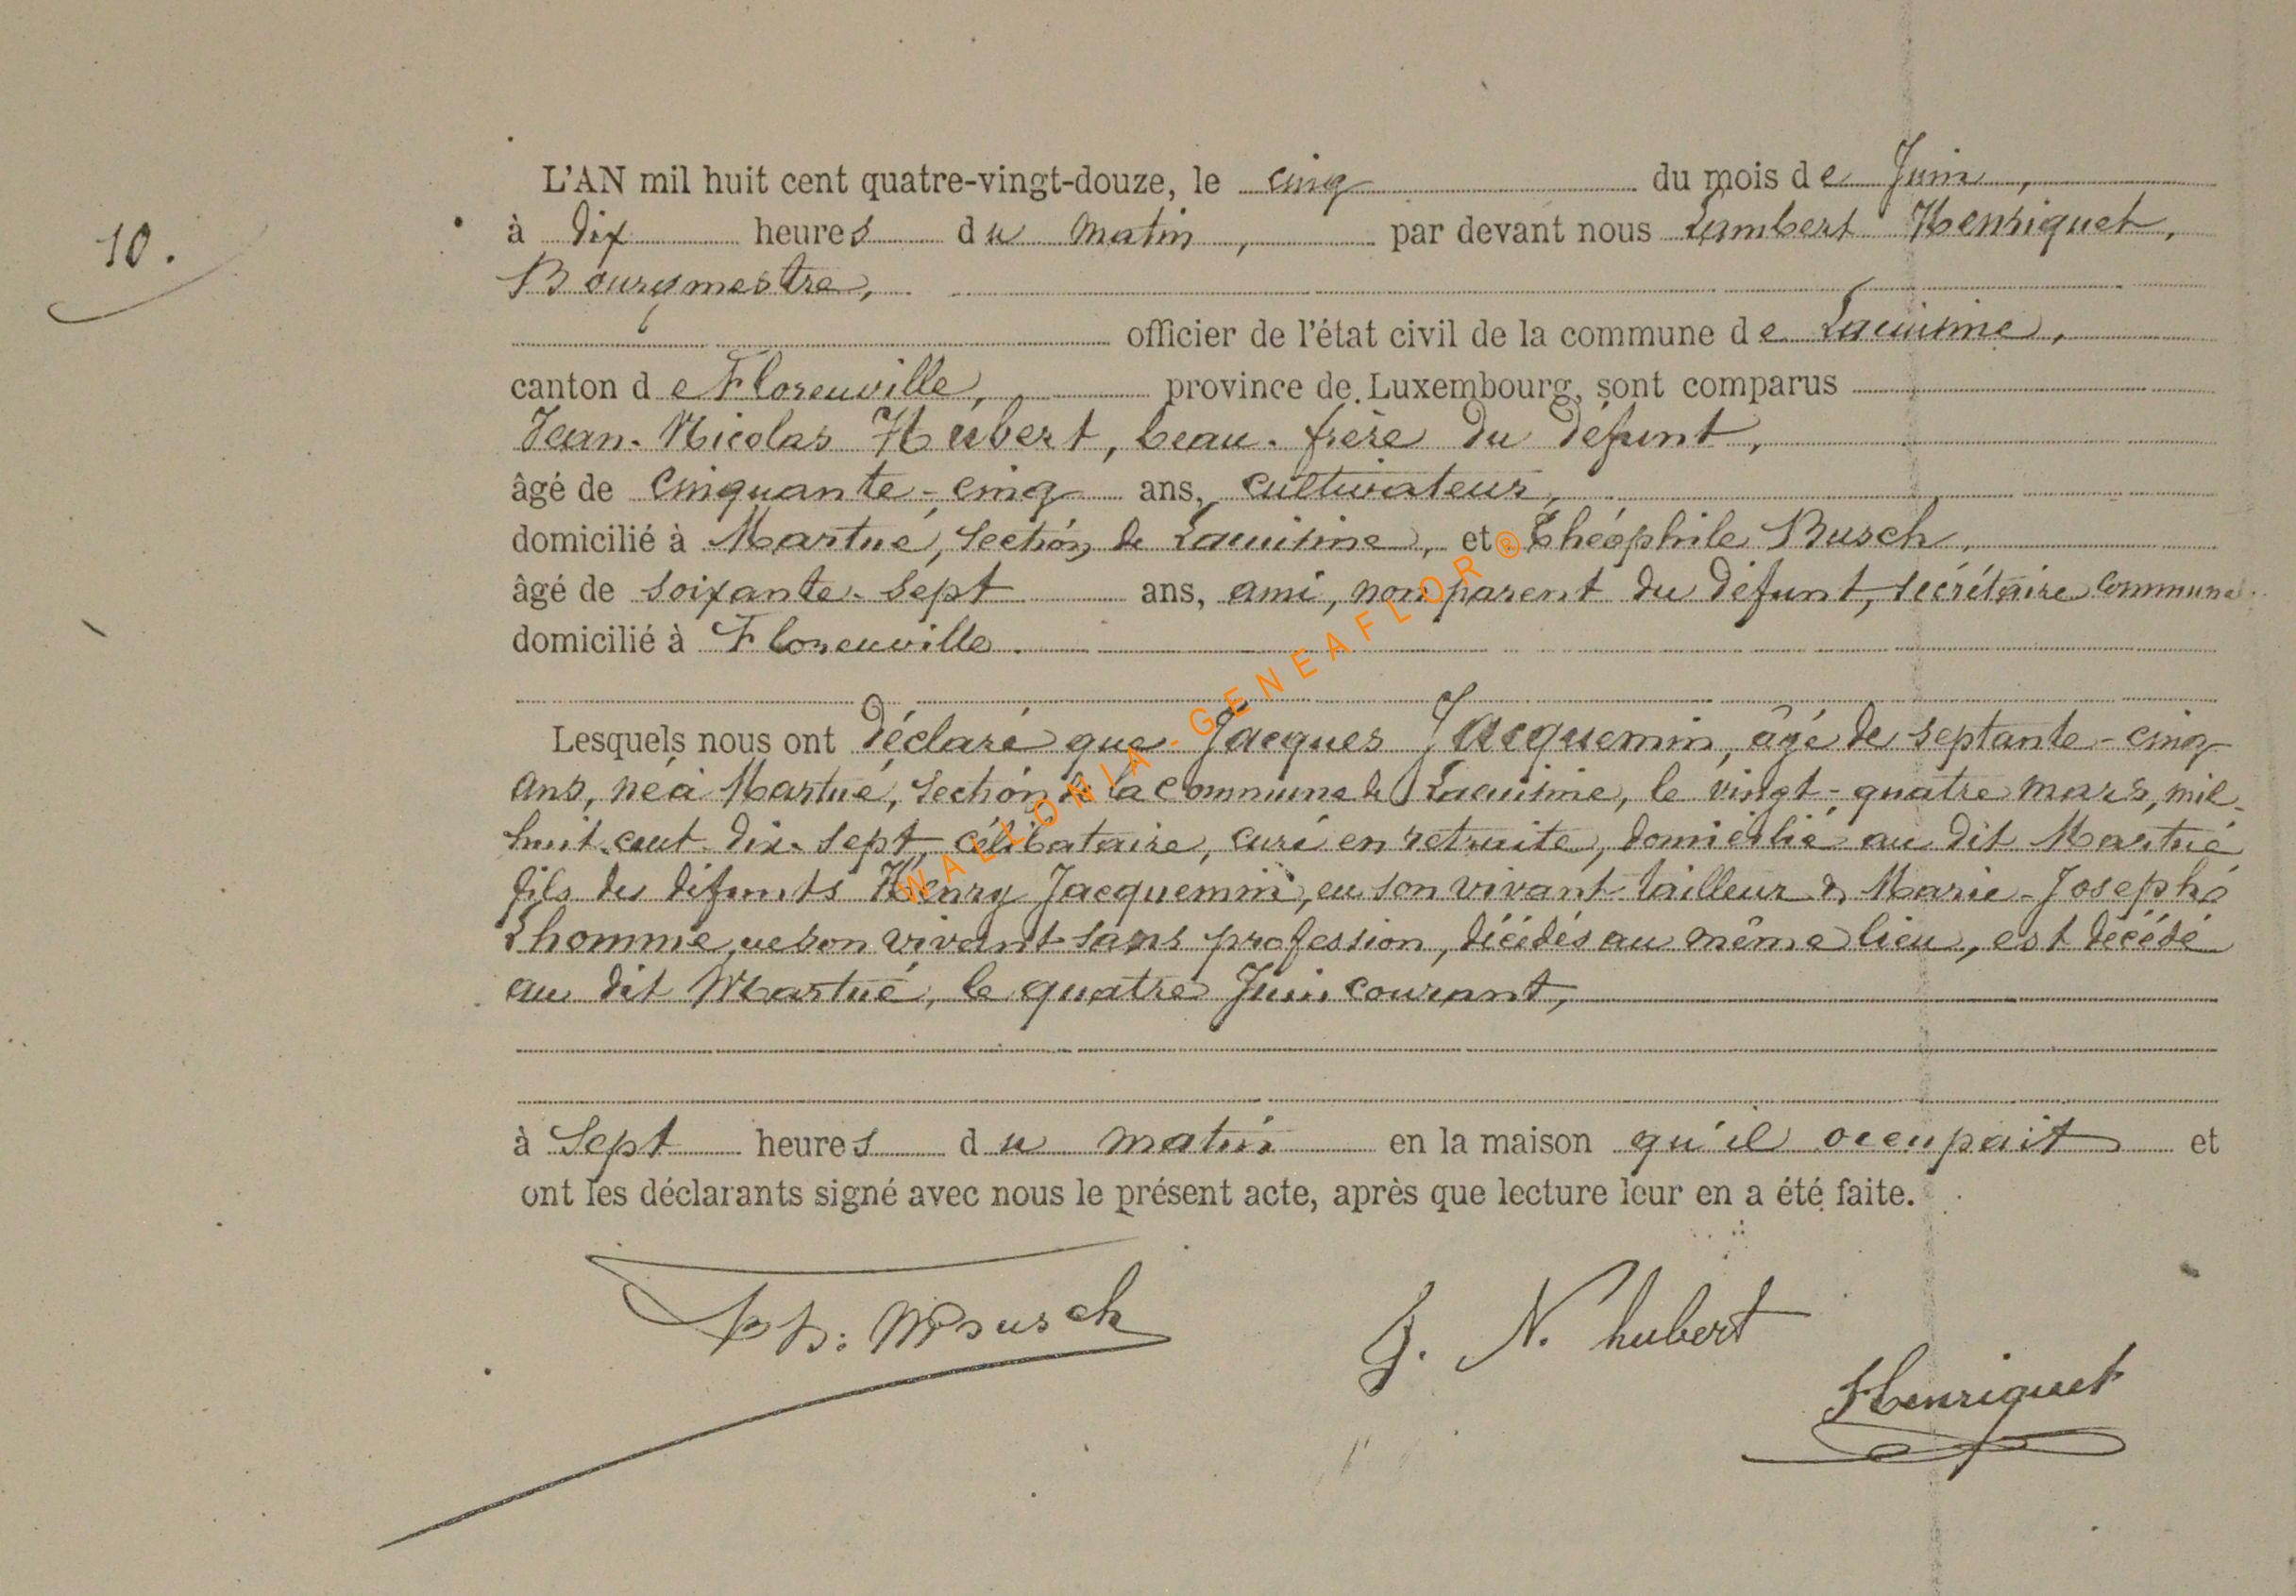 10.
L'AN mil huit cent quatre-vingt-douze, le cinq du mois de Juin,
à dix heures du matin, par devant nous Lambert Henriquet,
Bourgmestre,
officier de l'état civil de la commune de Lacuisine,
canton de Florenville, province de Luxembourg, sont comparus
Jean-Nicolas Hubert, beau-frère du défunt,
âgé de cinquante-cinq ans, cultivateur,
domicilié à Martué, section de Lacuisine, et Théophile Busch,
âgé de soixante-sept ans, ami, non parent du défunt, secrétaire communal
domicilié à Florenville.
Lesquels nous ont déclaré que Jacques Jacquemin, âgé de septante-cinq
ans, né à Martué, section de la commune de Lacuisine, le vingt-quatre mars, mil
huit cent dix-sept, célibataire, curé en retraite, domicilié au dit Martué
fils des défunts Henry Jacquemin, en son vivant tailleur & Marie-Josephe
Lhomme, en son vivant sans profession, décédés au même lieu, est décédé
au dit Martué, le quatre Juin courant,
à sept heures du matin en la maison qu'il occupait et
ont les déclarants signé avec nous le présent acte, après que lecture leur en a été faite.
Th: Busch
J. N. hubert
Henriquet
WALLONIA-GENEAFLOR®